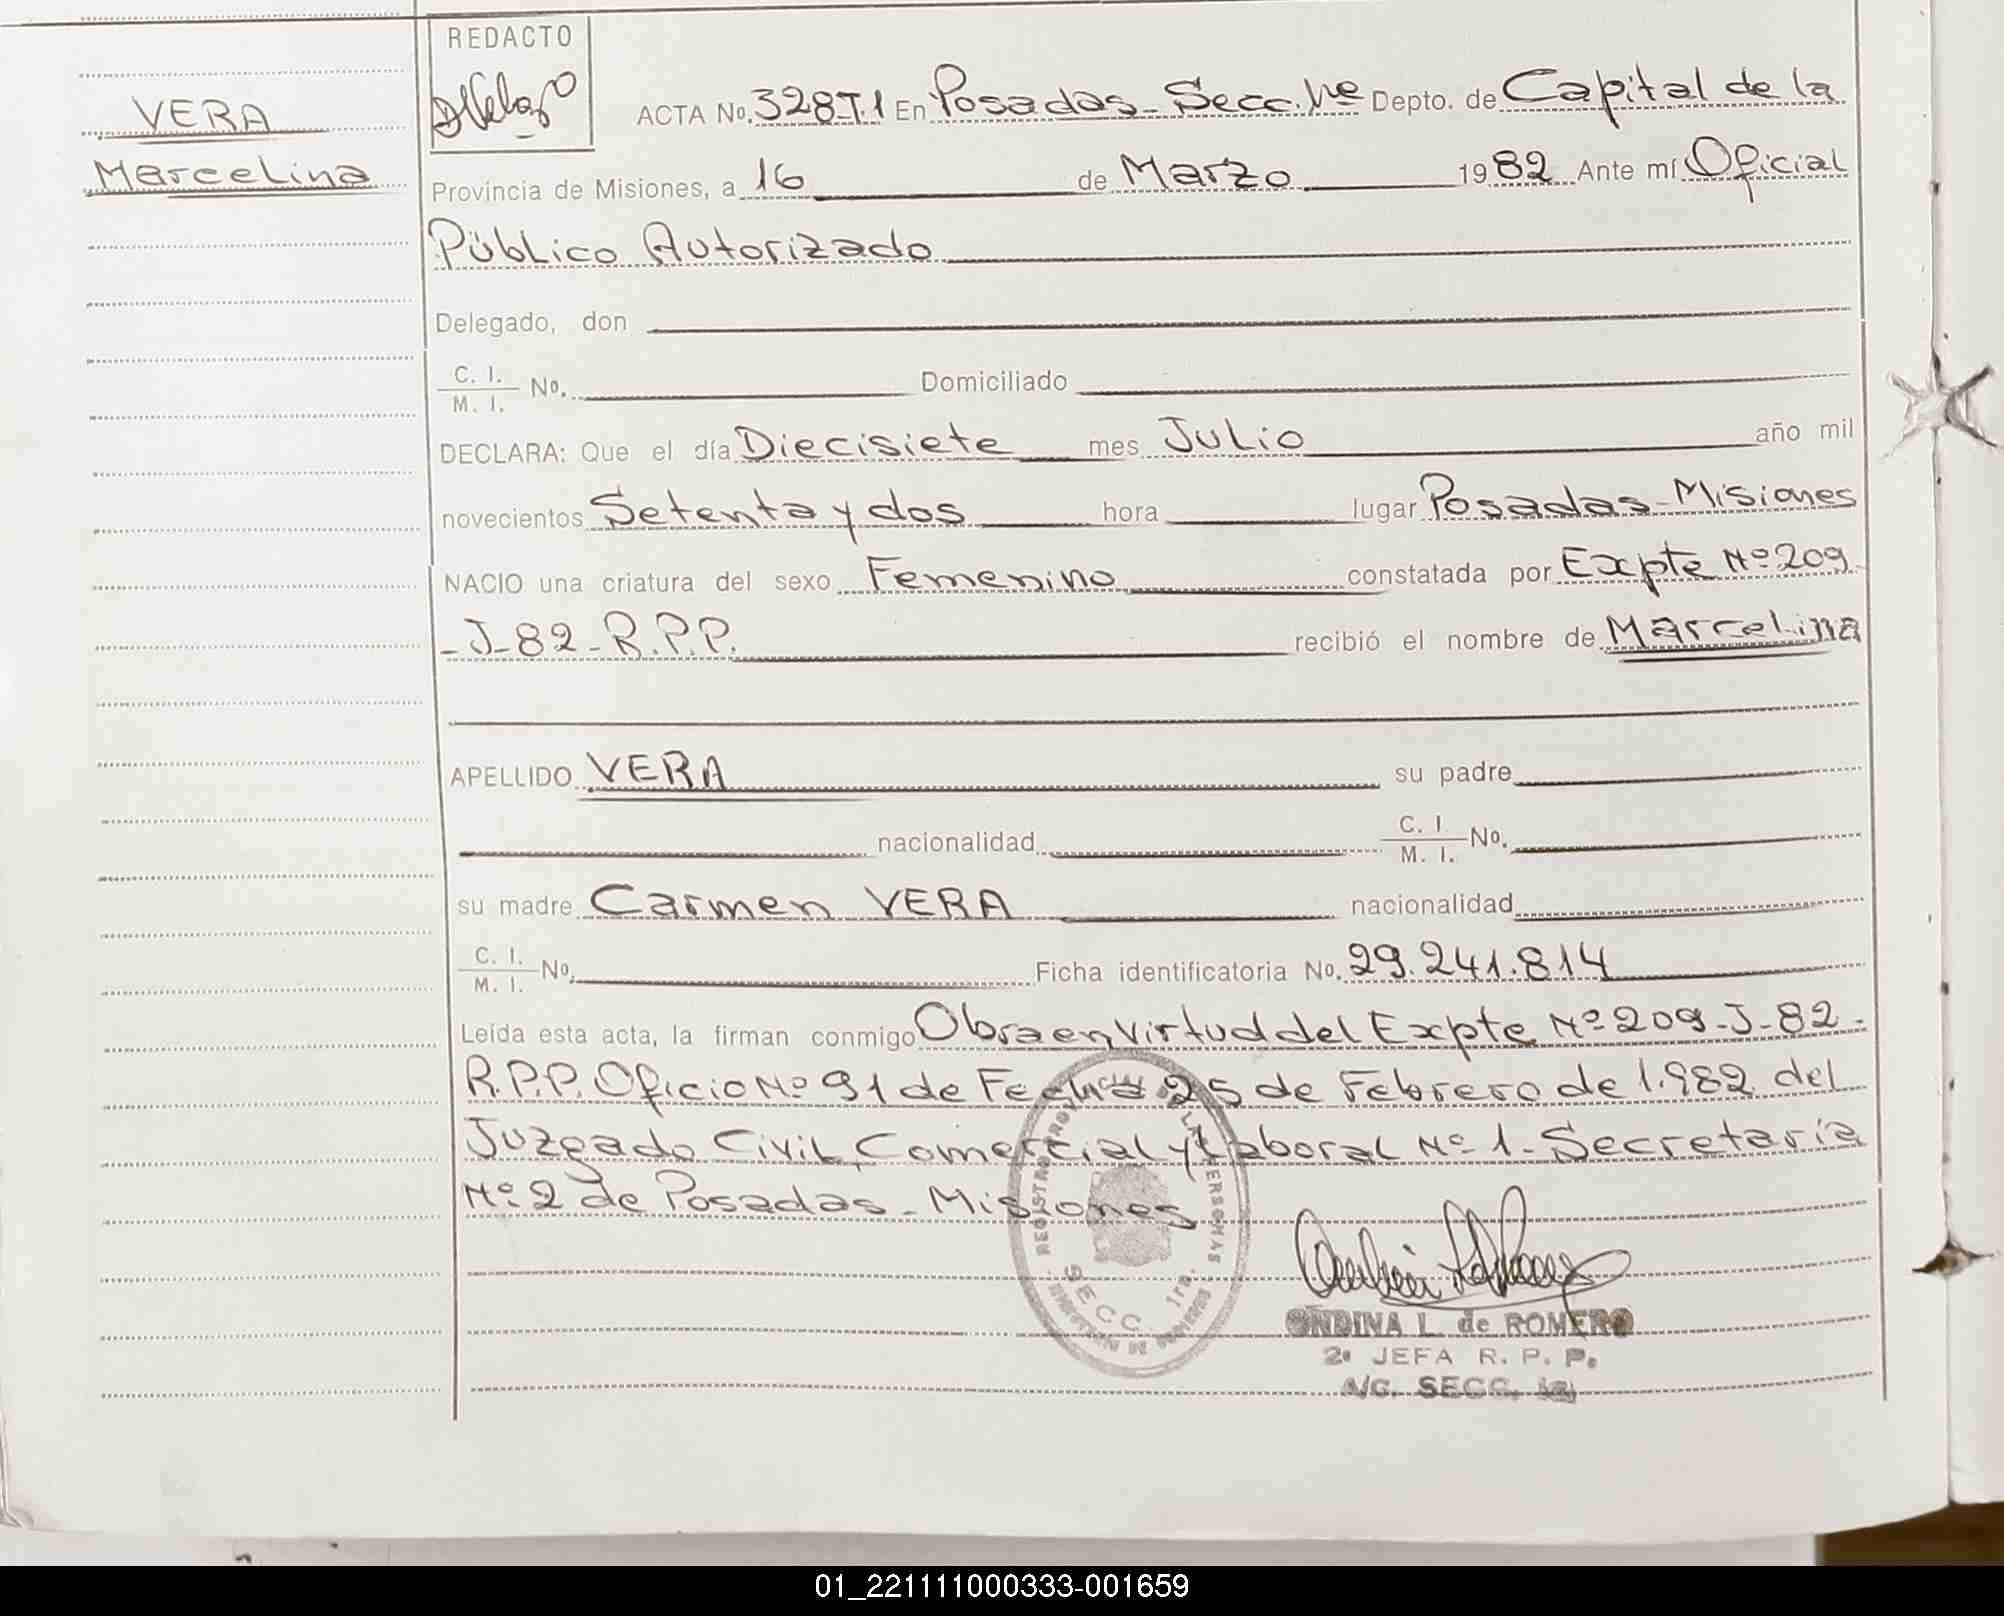 VERA
Marcelina
REDACTO
ACTA No. 328T.1 En Posadas - Secc. 1ra Depto. de Capital de la
Provincia de Misiones, a 16 de Marzo 1982 Ante mí Oficial
Público Autorizado
Delegado, don
C. I.
M. I. No. Domiciliado
DECLARA: Que el día Diecisiete mes Julio año mil
novecientos Setenta y dos hora lugar Posadas - Misiones
NACIO una criatura del sexo Femenino constatada por Expte Nº 209
- J - 82 - R.P.P. recibió el nombre de Marcelina
APELLIDO VERA su padre
nacionalidad C. I.
M. I. No.
su madre Carmen VERA nacionalidad
C. I.
M. I. No. Ficha identificatoria No. 29.241.814
Leída esta acta, la firman conmigo Obra en virtud del Expte Nº 209 - J - 82 -
R.P.P. Oficio Nº 91 de Fecha 25 de Febrero de 1.982 del
Juzgado Civil, Comercial y Laboral Nº 1 - Secretaría
Nº 2 de Posadas - Misiones
SECC. 1ra.
ONDINA L. de ROMERO
2ª JEFA R. P. P.
A/C. SECC. 1a
01_221111000333-001659